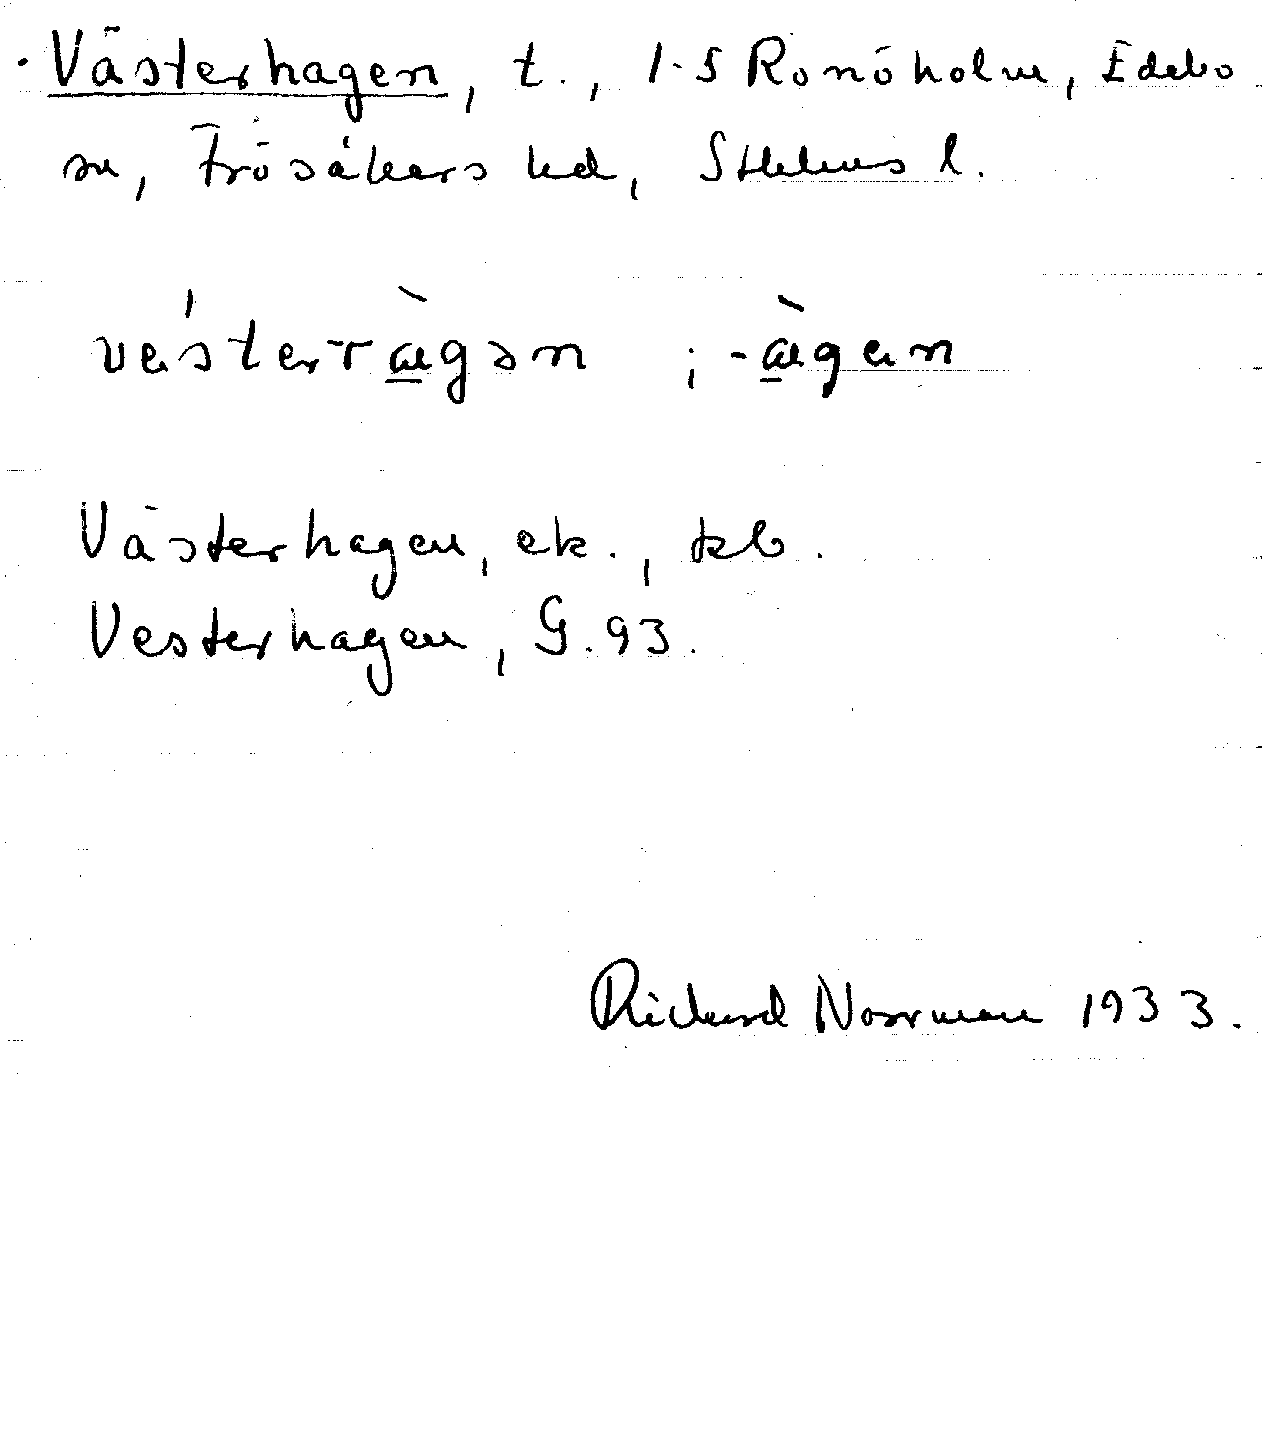 Västerhagen, t., 1-5 Ronöholm, Edebo
sn, Frösåkers hd, Sthlms l.
västerràgən ; -àgan
Västerhagen, ek., kb.
Vesterhagen, G. 93.
Rickard Norrman 1933.